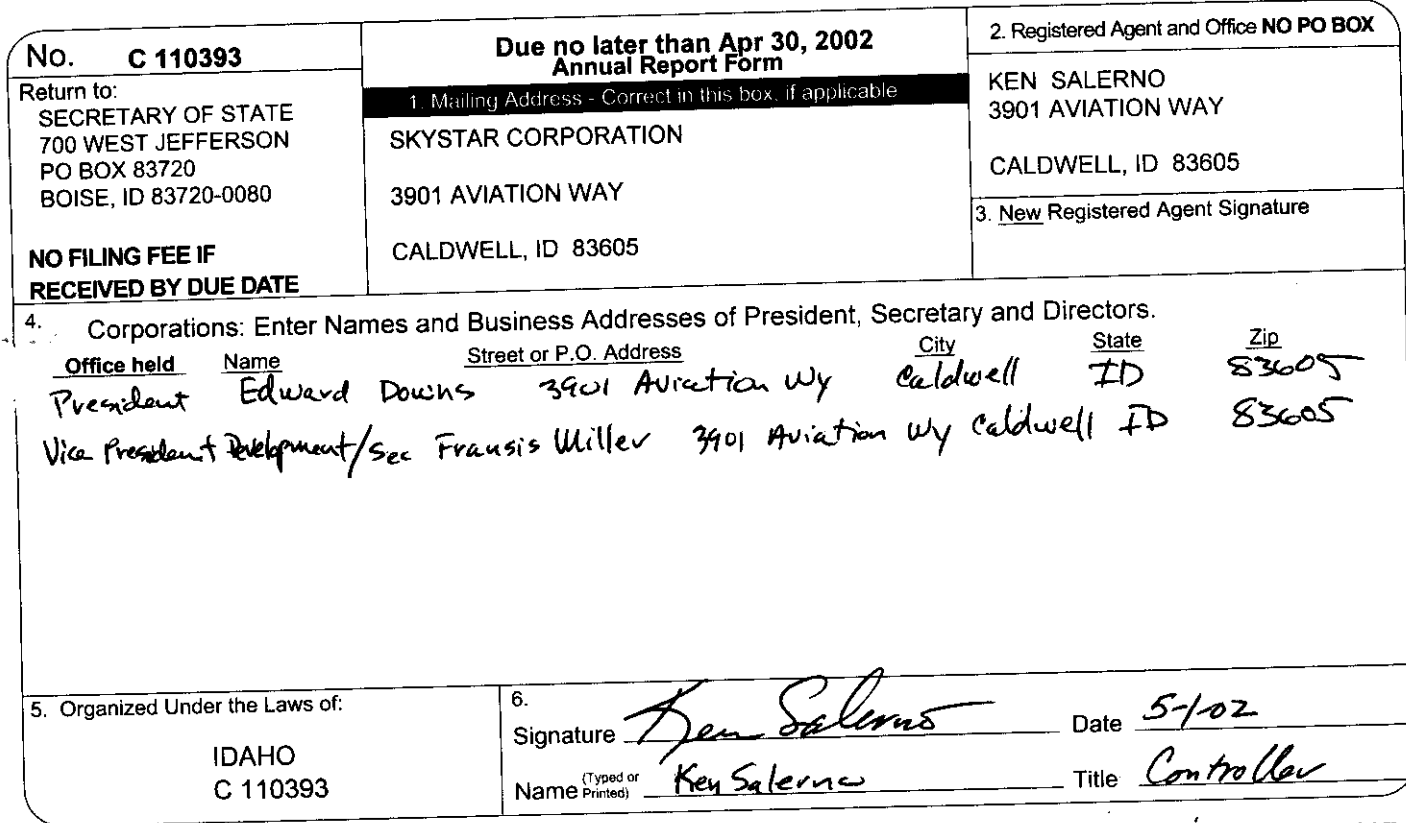 No. C 110393
Return to:
SECRETARY OF STATE
700 WEST JEFFERSON
PO BOX 83720
BOISE, ID 83720-0080
NO FILING FEE IF
RECEIVED BY DUE DATE
Due no later than Apr 30, 2002
Annual Report Form
1. Mailing Address - Correct in this box, if applicable
SKYSTAR CORPORATION
3901 AVIATION WAY
CALDWELL, ID 83605
2. Registered Agent and Office NO PO BOX
KEN SALERNO
3901 AVIATION WAY
CALDWELL, ID 83605
3. New Registered Agent Signature
4. Corporations: Enter Names and Business Addresses of President, Secretary and Directors.
Office held Name Street or P.O. Address City State Zip
President Edward Downs 3901 Aviation Wy Caldwell ID 83605
Vice President Development/Sec Fransis Miller 3901 Aviation Wy Caldwell ID 83605
5. Organized Under the Laws of:
IDAHO
C 110393
6.
Signature Ken Salerno Date 5-1-02
Name (Typed or Printed) Ken Salerno Title Controller